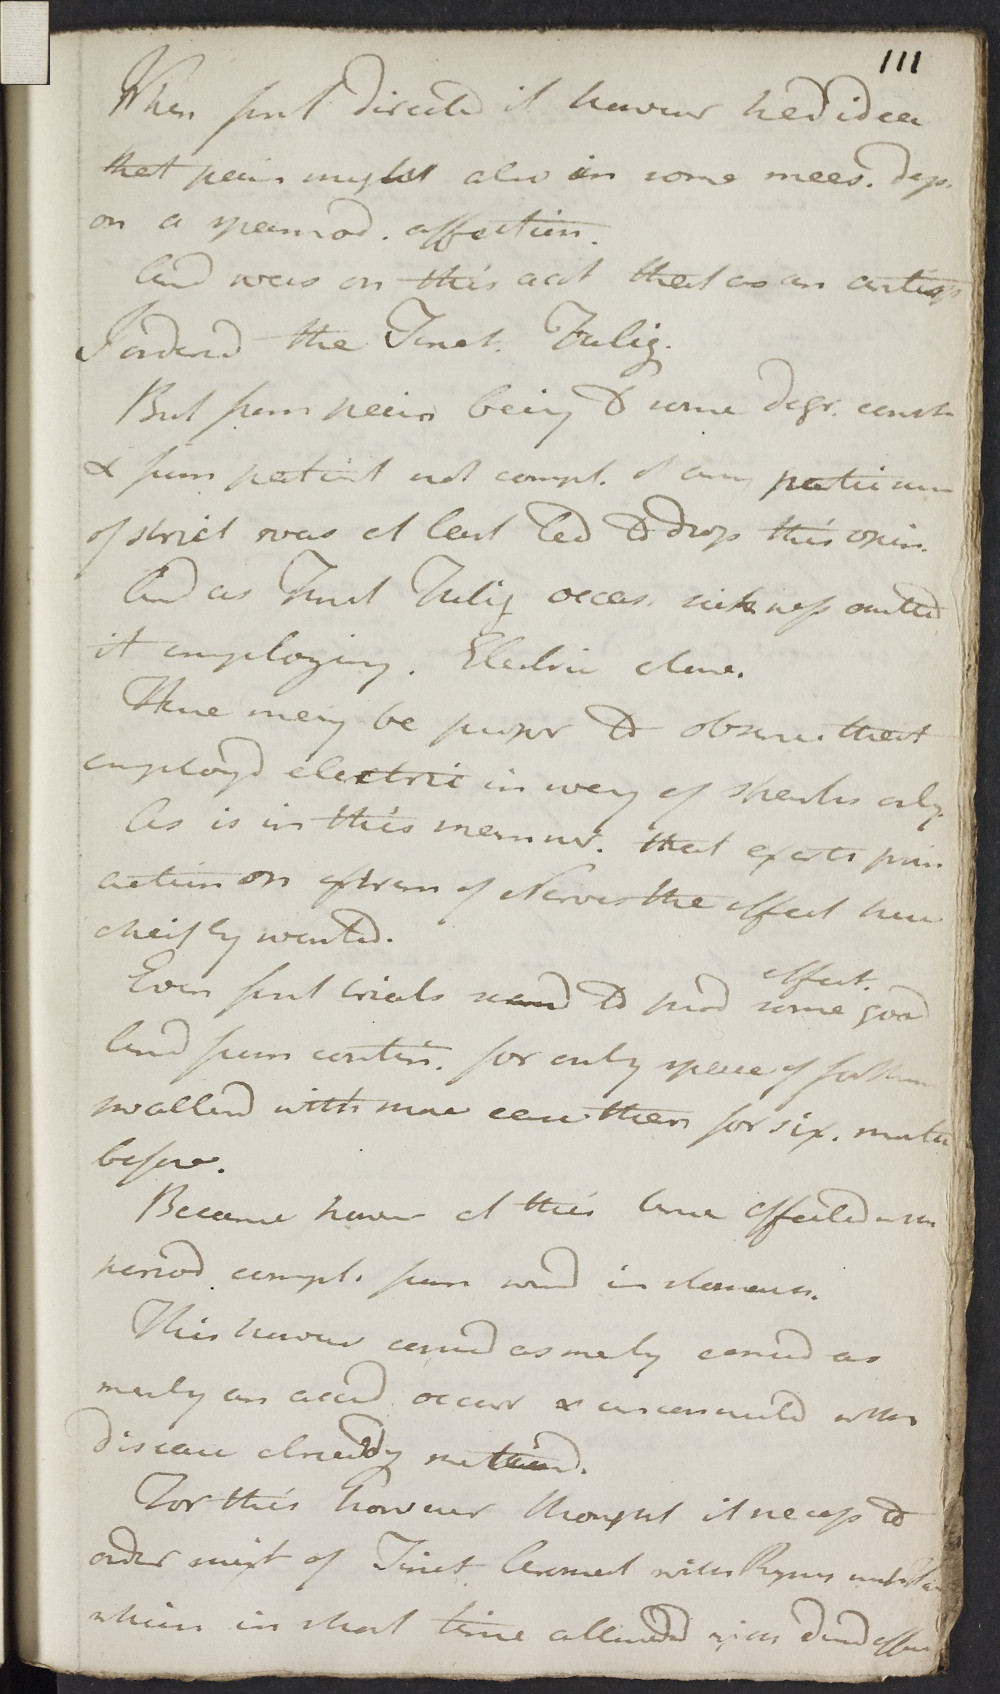 111
When first directed it however had idea
that pain might also in some meas. dep.
on a spasmod. affection.
And was on this acct that as an antisp
I ordered the Tinct. Fulig.
But from pain being to some degr. const
& from patient not compl. of any
of strict was at least led to drop this opin.
And as Tinct Fulig occas. sickness omitted
it employing. Electric alone.
Here may be proper to observe that
employd electric in way of sparks only.
As is in this manner. that exerts prin
action on extrem of Nerves the effect here
cheifly wanted.
effect.
Even first trials seemd to prod some good
And from contin. for only space of
swallend with more ease then for six. months
before.
Became however at this time affected with
period compl. from wind in stomach.
This however considd as merly considd as
merly an accid. occurr & unconnected with
disease already mentiond.
For this however thought it necess to
order mixt of Tinct Aromat with
which in short time allowed